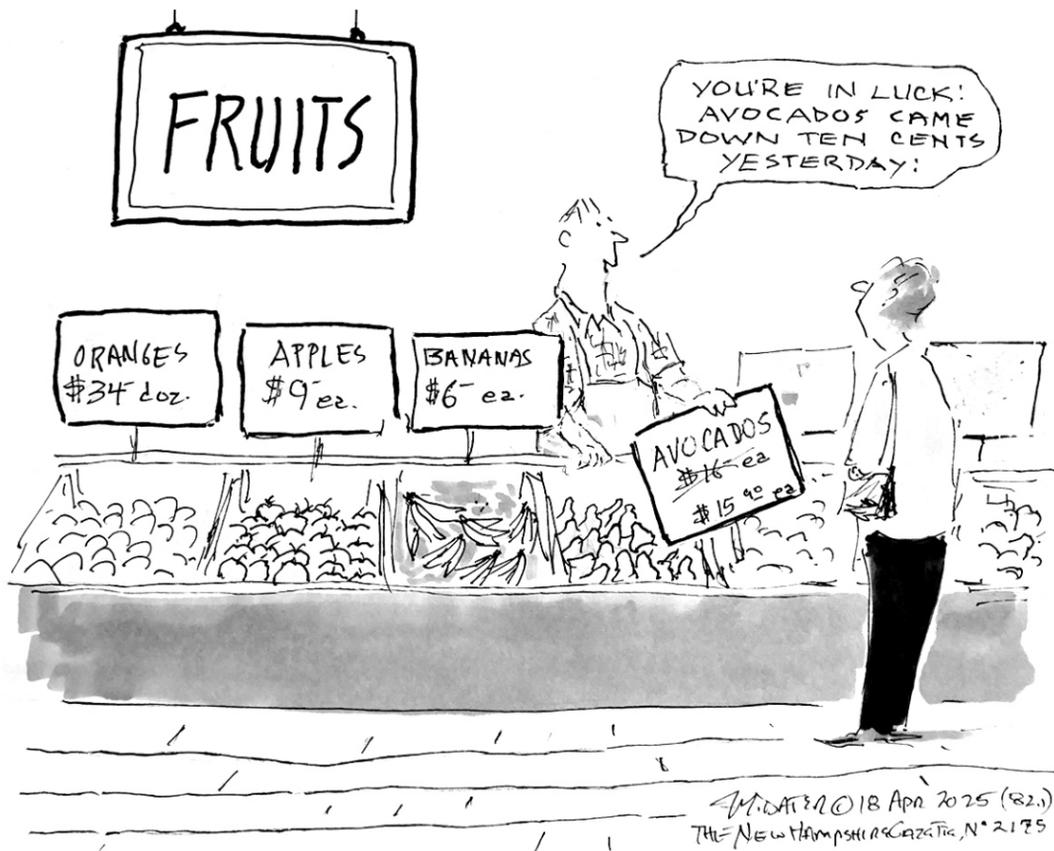 FRUITS
YOU'RE IN LUCK!
AVOCADOS CAME
DOWN TEN CENTS
YESTERDAY!
ORANGES
$34 doz.
APPLES
$9 ea.
BANANAS
$6 ea.
AVOCADOS
$16 ea
$15 90 ea
© 18 APR 2025 (82.1)
THE NEW HAMPSHIRE GAZETTE, Nº 2175